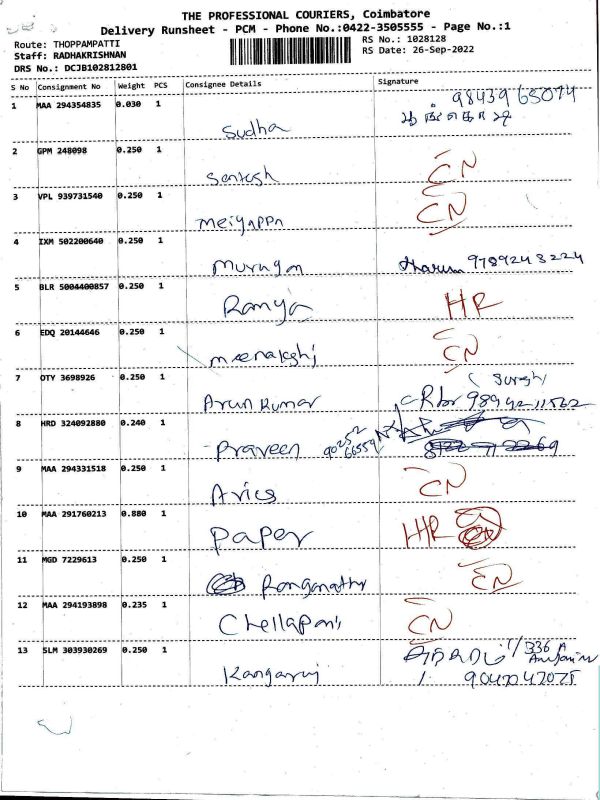 THE PROFESSIONAL COURIERS, Coimbatore
Delivery Runsheet - PCM - Phone No.:0422-3505555 - Page No.:1
Route: THOPPAMPATTI
RS No.: 1028128
Staff: RADHAKRISHNAN
RS Date: 26-Sep-2022
DRS No.: DCJB102812801
S No Consignment No Weight PCS Consignee Details Signature
1 MAA 294354835 0.030 1 Sudha 9843965074
2 GPM 248098 0.250 1 Santosh CN
3 VPL 939731540 0.250 1 Meiyappn CN
4 IXM 502200640 0.250 1 Murugan 9789243224
5 BLR 5004400857 0.250 1 Ramya HR
6 EDQ 20144646 0.250 1 Meenakshi CN
7 OTY 3698926 0.250 1 Arun Kumar
8 HRD 324092880 0.240 1 Praveen
9 MAA 294331518 0.250 1 CN
10 MAA 291760213 0.880 1 Paper HR
11 MGD 7229613 0.250 1 CN
12 MAA 294193898 0.235 1 CN
13 SLM 303930269 0.250 1 Kangaraj